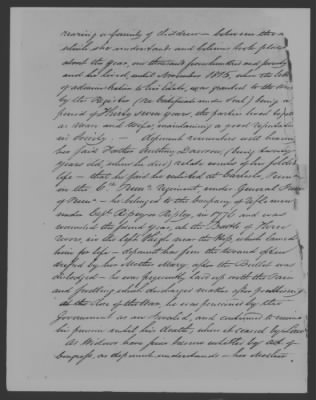 rearing a family of children – between the
which she understands and believes took place
about the year, one thousand seven hundred and seventy
and he lived, until November 1815, when the letters
of administration to his estate, was granted to the
by the Register (see Certificate under Seal) being a
period of thirty seven years, the parties lived together
as man and wife, maintaining a good reputation
in Society. – Deponent remembers well hearing
her said Father Anthony Dawson, (being twenty
years old, when he died) relate much of his soldier's
life – that he said he enlisted at Carlisle, Penn
in the 6th Penna regiment, under General
of Penna – he belonged to the Company of riflemen
under Capt. or Ripley, in 1776 and was
wounded the second year, at the Battle of Three
Rivers, in the left thigh near the Hip, which lamed
him for life – deponent has seen the wound often
dressed by her Mother Mary after the Bullet was
dislodged – he was frequently laid up with the pain
and swelling which discharged matter after
At the Close of the War, he was pensioned by the
Government as an Invalid, and continued to receive
his pension until his death, when it ceased by Law
As Widows have since become entitled by act of
Congress, as deponent understands – her Mother